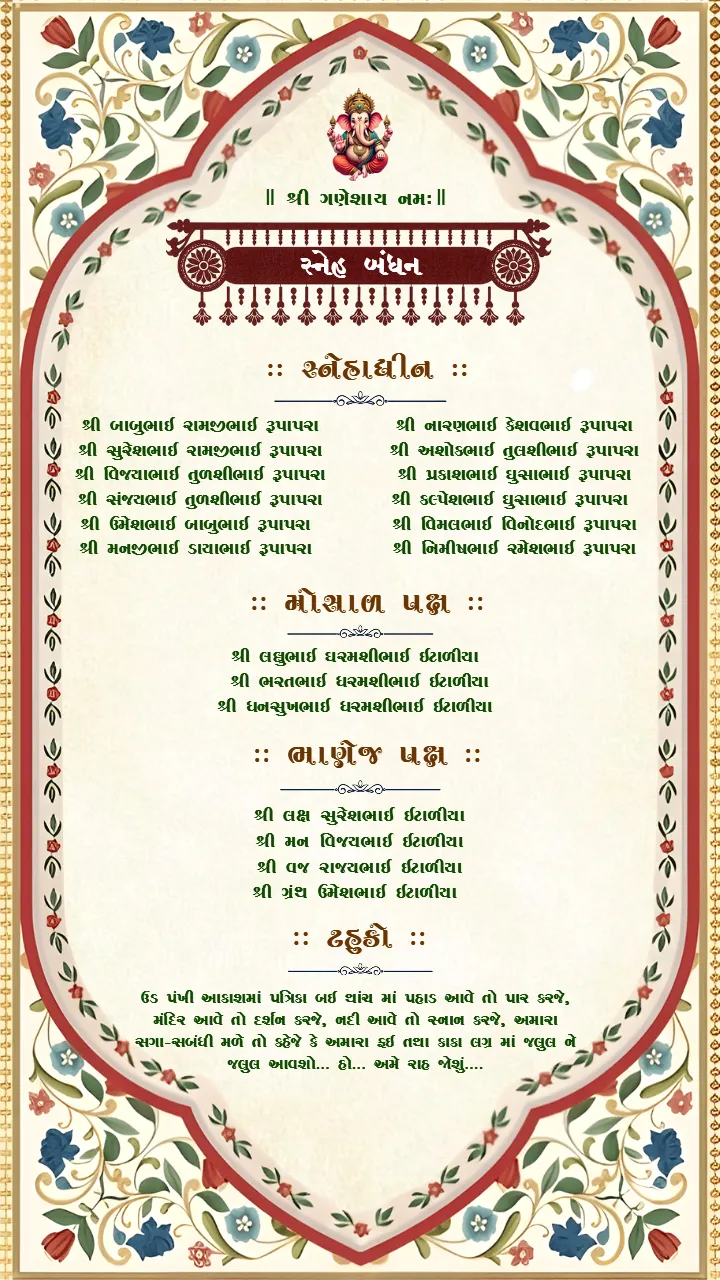 || શ્રી ગણેશાય નમઃ ||
સ્નેહ બંધન
:: સ્નેહાધીન ::
શ્રી બાબુભાઈ રામજીભાઈ રૂપાપરા
શ્રી સુરેશભાઈ રામજીભાઈ રૂપાપરા
શ્રી વિજયાભાઈ તુળશીભાઈ રૂપાપરા
શ્રી સંજયભાઈ તુળશીભાઈ રૂપાપરા
શ્રી ઉમેશભાઈ બાબુભાઈ રૂપાપરા
શ્રી મનજીભાઈ ડાયાભાઈ રૂપાપરા
શ્રી નારણભાઈ કેશવભાઈ રૂપાપરા
શ્રી અશોકભાઈ તુલશીભાઈ રૂપાપરા
શ્રી પ્રકાશભાઈ ઘુસાભાઈ રૂપાપરા
શ્રી કલ્પેશભાઈ ઘુસાભાઈ રૂપાપરા
શ્રી વિમલભાઈ વિનોદભાઈ રૂપાપરા
શ્રી નિમીષભાઈ રમેશભાઈ રૂપાપરા
:: મોસાળ પક્ષ ::
શ્રી લઘુભાઈ ધરમશીભાઈ ઈટાળીયા
શ્રી ભરતભાઈ ધરમશીભાઈ ઈટાળીયા
શ્રી ધનસુખભાઈ ધરમશીભાઈ ઈટાળીયા
:: ભાણેજ પક્ષ ::
શ્રી લક્ષ સુરેશભાઈ ઈટાળીયા
શ્રી મન વિજયભાઈ ઈટાળીયા
શ્રી વજ રાજયભાઈ ઈટાળીયા
શ્રી ગ્રંથ ઉમેશભાઈ ઈટાળીયા
:: ટહુકો ::
ઉડ પંખી આકાશમાં પત્રિકા બઈ થાંચ માં પહાડ આવે તો પાર કરજે,
મંદિર આવે તો દર્શન કરજે, નદી આવે તો સ્નાન કરજે, અમારા
સગા-સબંધી મળે તો કહેજે કે અમારા ફઈ તથા કાકા લગ્ન માં જલુલ ને
જલુલ આવશો... હો... અમે રાહ જોશું....